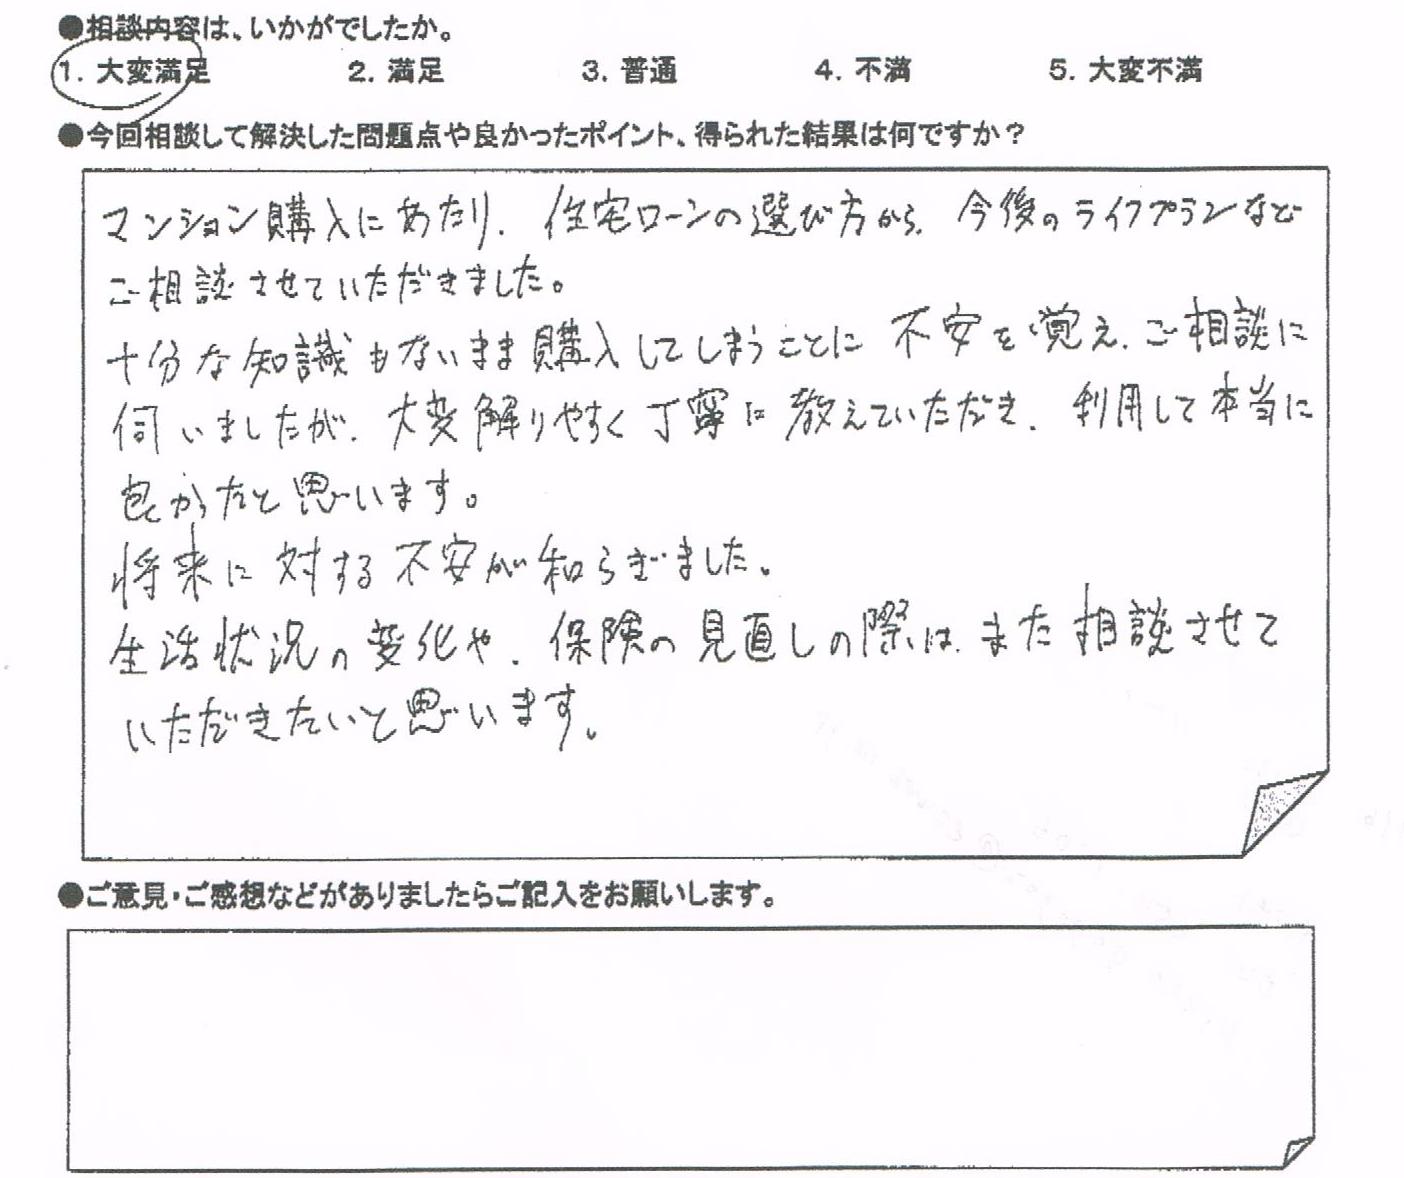 ●相談内容は、いかがでしたか。
1. 大変満足 2. 満足 3. 普通 4. 不満 5. 大変不満
●今回相談して解決した問題点や良かったポイント、得られた結果は何ですか？
マンション購入にあたり、住宅ローンの選び方から、今後のライフプランなど
ご相談させていただきました。
十分な知識もないまま購入してしまうことに不安を覚え、ご相談に
伺いましたが、大変解りやすく丁寧に教えていただき、利用して本当に
良かったと思います。
将来に対する不安が和らぎました。
生活状況の変化や、保険の見直しの際は、また相談させて
いただきたいと思います。
●ご意見・ご感想などがありましたらご記入をお願いします。